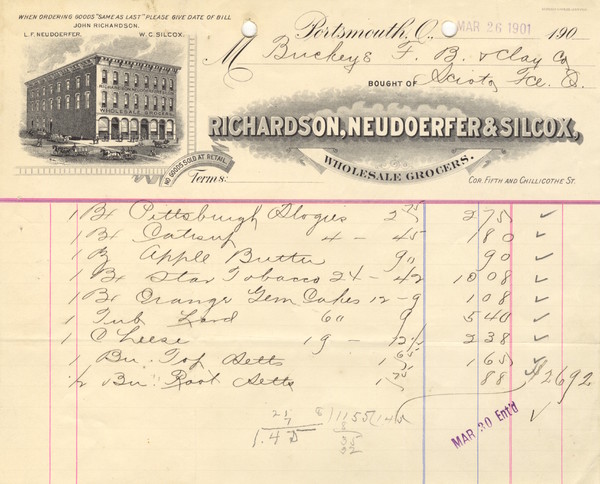 WHEN ORDERING GOODS "SAME AS LAST" PLEASE GIVE DATE OF BILL
JOHN RICHARDSON.
L. F. NEUDOERFER. W. C. SILCOX.
Portsmouth, O., MAR 26 1901 190
M Buckeye F. B. & Clay Co
BOUGHT OF Scioto Fce. O.
WHOLESALE GROCERS
RICHARDSON, NEUDOERFER & SILCOX,
WHOLESALE GROCERS.
NO GOODS SOLD AT RETAIL.
Terms: COR. FIFTH AND CHILLICOTHE ST.
1 Bx Pittsburgh Stogies 2 75 2 75
1 Bx Catsup 4 - 45 1 80
1 B Apple Butter 90 90
1 Bx Star Tobacco 24 - 42 10 08
1 Bx Orange Gem Cakes 12 - 9 1 08
1 Tub Lard 60 9 5 40
1 Cheese 19 - 12½ 2 38
1 Bu. Top Setts 1 65 1 65
½ Bu. Root Setts 1 75 88 $26 92
1.45
MAR 30 Ent'd